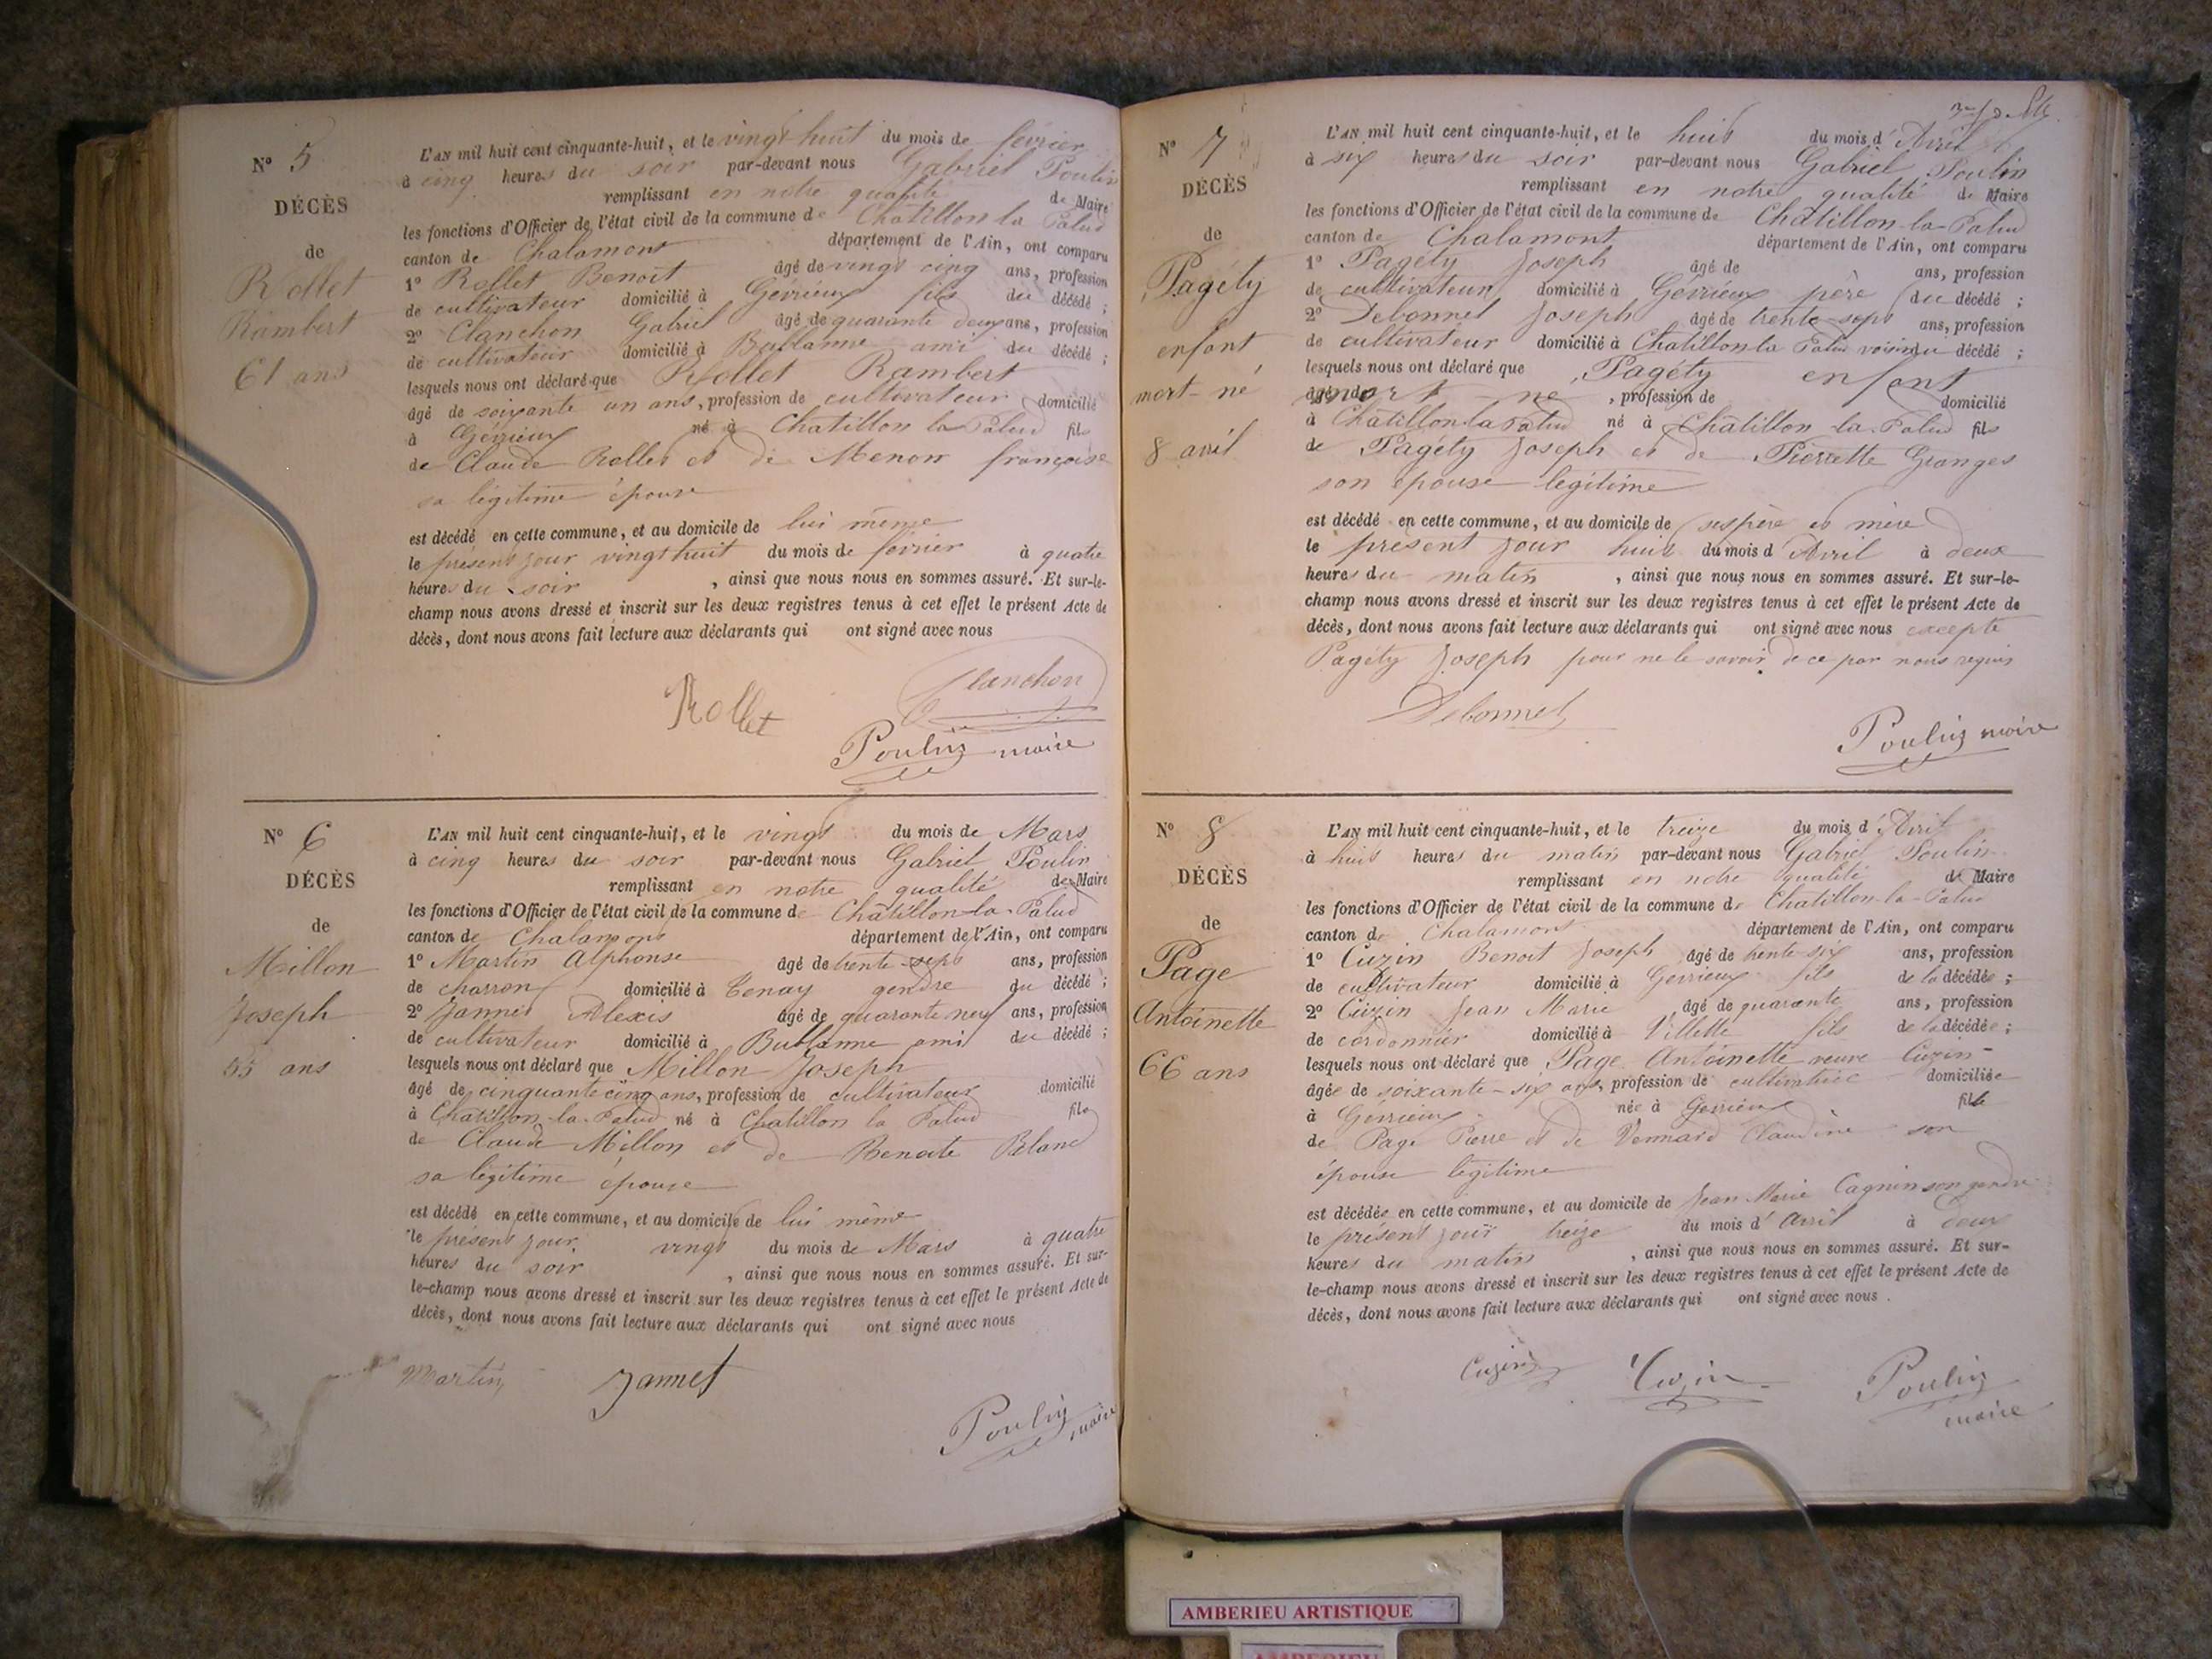 N° 5
DÉCÈS
de
Rollet
Rambert
61 ans
L'AN mil huit cent cinquante-huit, et le vingt huit du mois de février
à cinq heures du soir par-devant nous Gabriel Poulin
remplissant en notre qualité de Maire
les fonctions d'Officier de l'état civil de la commune de Chatillon la Palud
canton de Chalamont département de l'Ain, ont comparu
1° Rollet Benoit âgé de vingt cinq ans, profession
de cultivateur domicilié à Gévrieux fils du décédé ;
2° Clanchon Gabriel âgé de quarante deux ans, profession
de cultivateur domicilié à Bublanne ami du décédé ;
lesquels nous ont déclaré que Rollet Rambert
âgé de soixante un ans, profession de cultivateur domicilié
à Gévrieux né à Chatillon la Palud fils
de Claude Rollet et de Menon françoise
sa légitime épouse
est décédé en cette commune, et au domicile de lui même
le présent jour vingt huit du mois de février à quatre
heures du soir , ainsi que nous nous en sommes assuré. Et sur-le-
champ nous avons dressé et inscrit sur les deux registres tenus à cet effet le présent Acte de
décès, dont nous avons fait lecture aux déclarants qui ont signé avec nous
Rollet Clanchon
Poulin maire
N° 6
DÉCÈS
de
Millon
Joseph
55 ans
L'AN mil huit cent cinquante-huit, et le vingt du mois de Mars
à cinq heures du soir par-devant nous Gabriel Poulin
remplissant en notre qualité de Maire
les fonctions d'Officier de l'état civil de la commune de Châtillon-la-Palud
canton de Chalamont département de l'Ain, ont comparu
1° Martin Alphonse âgé de trente-sept ans, profession
de charron domicilié à Tenay gendre du décédé ;
2° Jannet Alexis âgé de quarante neuf ans, profession
de cultivateur domicilié à Bublanne ami du décédé ;
lesquels nous ont déclaré que Millon Joseph
âgé de cinquante cinq ans, profession de cultivateur domicilié
à Chatillon-la-Palud né à Chatillon la Palud fils
de Claude Millon et de Benoite Beland
sa légitime épouse
est décédé en cette commune, et au domicile de lui même
le présent jour vingt du mois de Mars à quatre
heures du soir , ainsi que nous nous en sommes assuré. Et sur-
le-champ nous avons dressé et inscrit sur les deux registres tenus à cet effet le présent Acte de
décès, dont nous avons fait lecture aux déclarants qui ont signé avec nous
Martin Jannet
Poulin maire
N° 7
DÉCÈS
de
Pagéty
enfant
mort-né
8 avril
L'AN mil huit cent cinquante-huit, et le huit du mois d'Avril
à six heures du soir par-devant nous Gabriel Poulin
remplissant en notre qualité de Maire
les fonctions d'Officier de l'état civil de la commune de Châtillon-la-Palud
canton de Chalamont département de l'Ain, ont comparu
1° Pagéty Joseph âgé de ans, profession
de cultivateur domicilié à Gévrieux père du décédé ;
2° Debonnet Joseph âgé de trente-sept ans, profession
de cultivateur domicilié à Chatillon la Palud voisin du décédé ;
lesquels nous ont déclaré que Pagéty enfant
mort-né , profession de domicilié
à Châtillon la Palud né à Châtillon-la-Palud fils
de Pagéty Joseph et de Pierrette Granges
son épouse légitime
est décédé en cette commune, et au domicile de ses père et mère
le présent jour huit du mois d'Avril à deux
heures du matin , ainsi que nous nous en sommes assuré. Et sur-le-
champ nous avons dressé et inscrit sur les deux registres tenus à cet effet le présent Acte de
décès, dont nous avons fait lecture aux déclarants qui ont signé avec nous excepté
Pagéty Joseph pour ne le savoir de ce par nous requis
Debonnet
Poulin maire
N° 8
DÉCÈS
de
Page
Antoinette
66 ans
L'AN mil huit cent cinquante-huit, et le treize du mois d'Avril
à huit heures du matin par-devant nous Gabriel Poulin
remplissant en notre qualité de Maire
les fonctions d'Officier de l'état civil de la commune de Chatillon-la-Palud
canton de Chalamont département de l'Ain, ont comparu
1° Cuzin Benoit Joseph âgé de trente-six ans, profession
de cultivateur domicilié à Gévrieux fils de la décédée ;
2° Cuzin Jean Marie âgé de quarante ans, profession
de cordonnier domicilié à Villette fils de la décédée ;
lesquels nous ont déclaré que Page Antoinette veuve Cuzin
âgée de soixante-six ans, profession de cultivatrice domiciliée
à Gévrieux née à Gévrieux fille
de Page Pierre et de Vennard Claudine son
épouse légitime
est décédée en cette commune, et au domicile de Jean Marie Cagnin son gendre
le présent jour treize du mois d'Avril à deux
heures du matin , ainsi que nous nous en sommes assuré. Et sur-
le-champ nous avons dressé et inscrit sur les deux registres tenus à cet effet le présent Acte de
décès, dont nous avons fait lecture aux déclarants qui ont signé avec nous .
Cuzin Cuzin Poulin
maire
AMBERIEU ARTISTIQUE
AMBERIEU